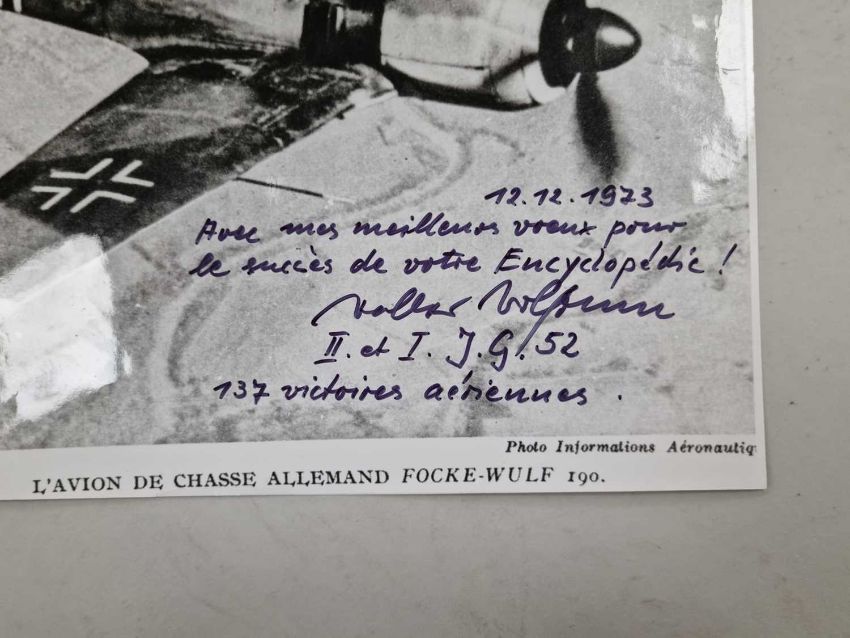 12.12.1973
Avec mes meilleurs voeux pour
le succès de votre Encyclopédie !
Walter Wolfrum
II. et I. J.G. 52
137 victoires aériennes .
Photo Informations Aéronautiq
L'AVION DE CHASSE ALLEMAND FOCKE-WULF 190.